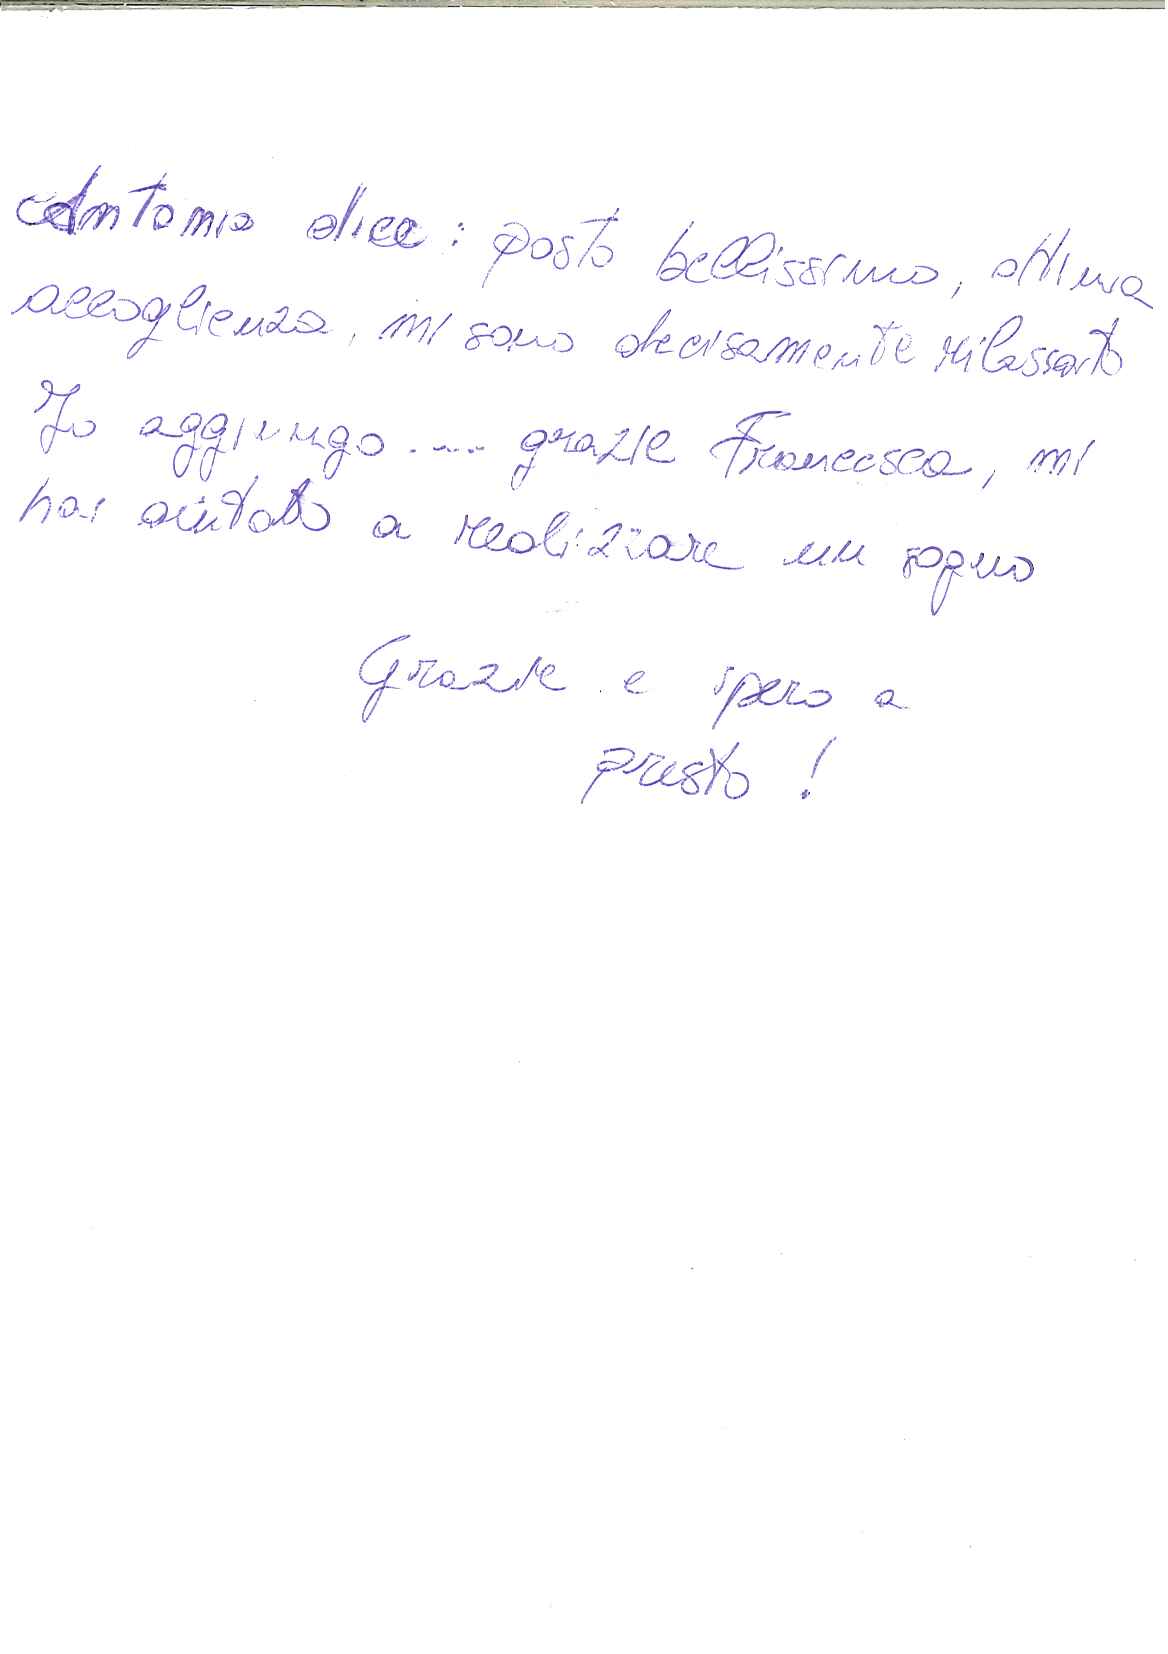 Antonio dice: posto bellissimo, ottima
accoglienza, mi sono decisamente rilassato
Io aggiungo .... grazie Francesca, mi
hai aiutato a realizzare un sogno
Grazie e spero a
presto!